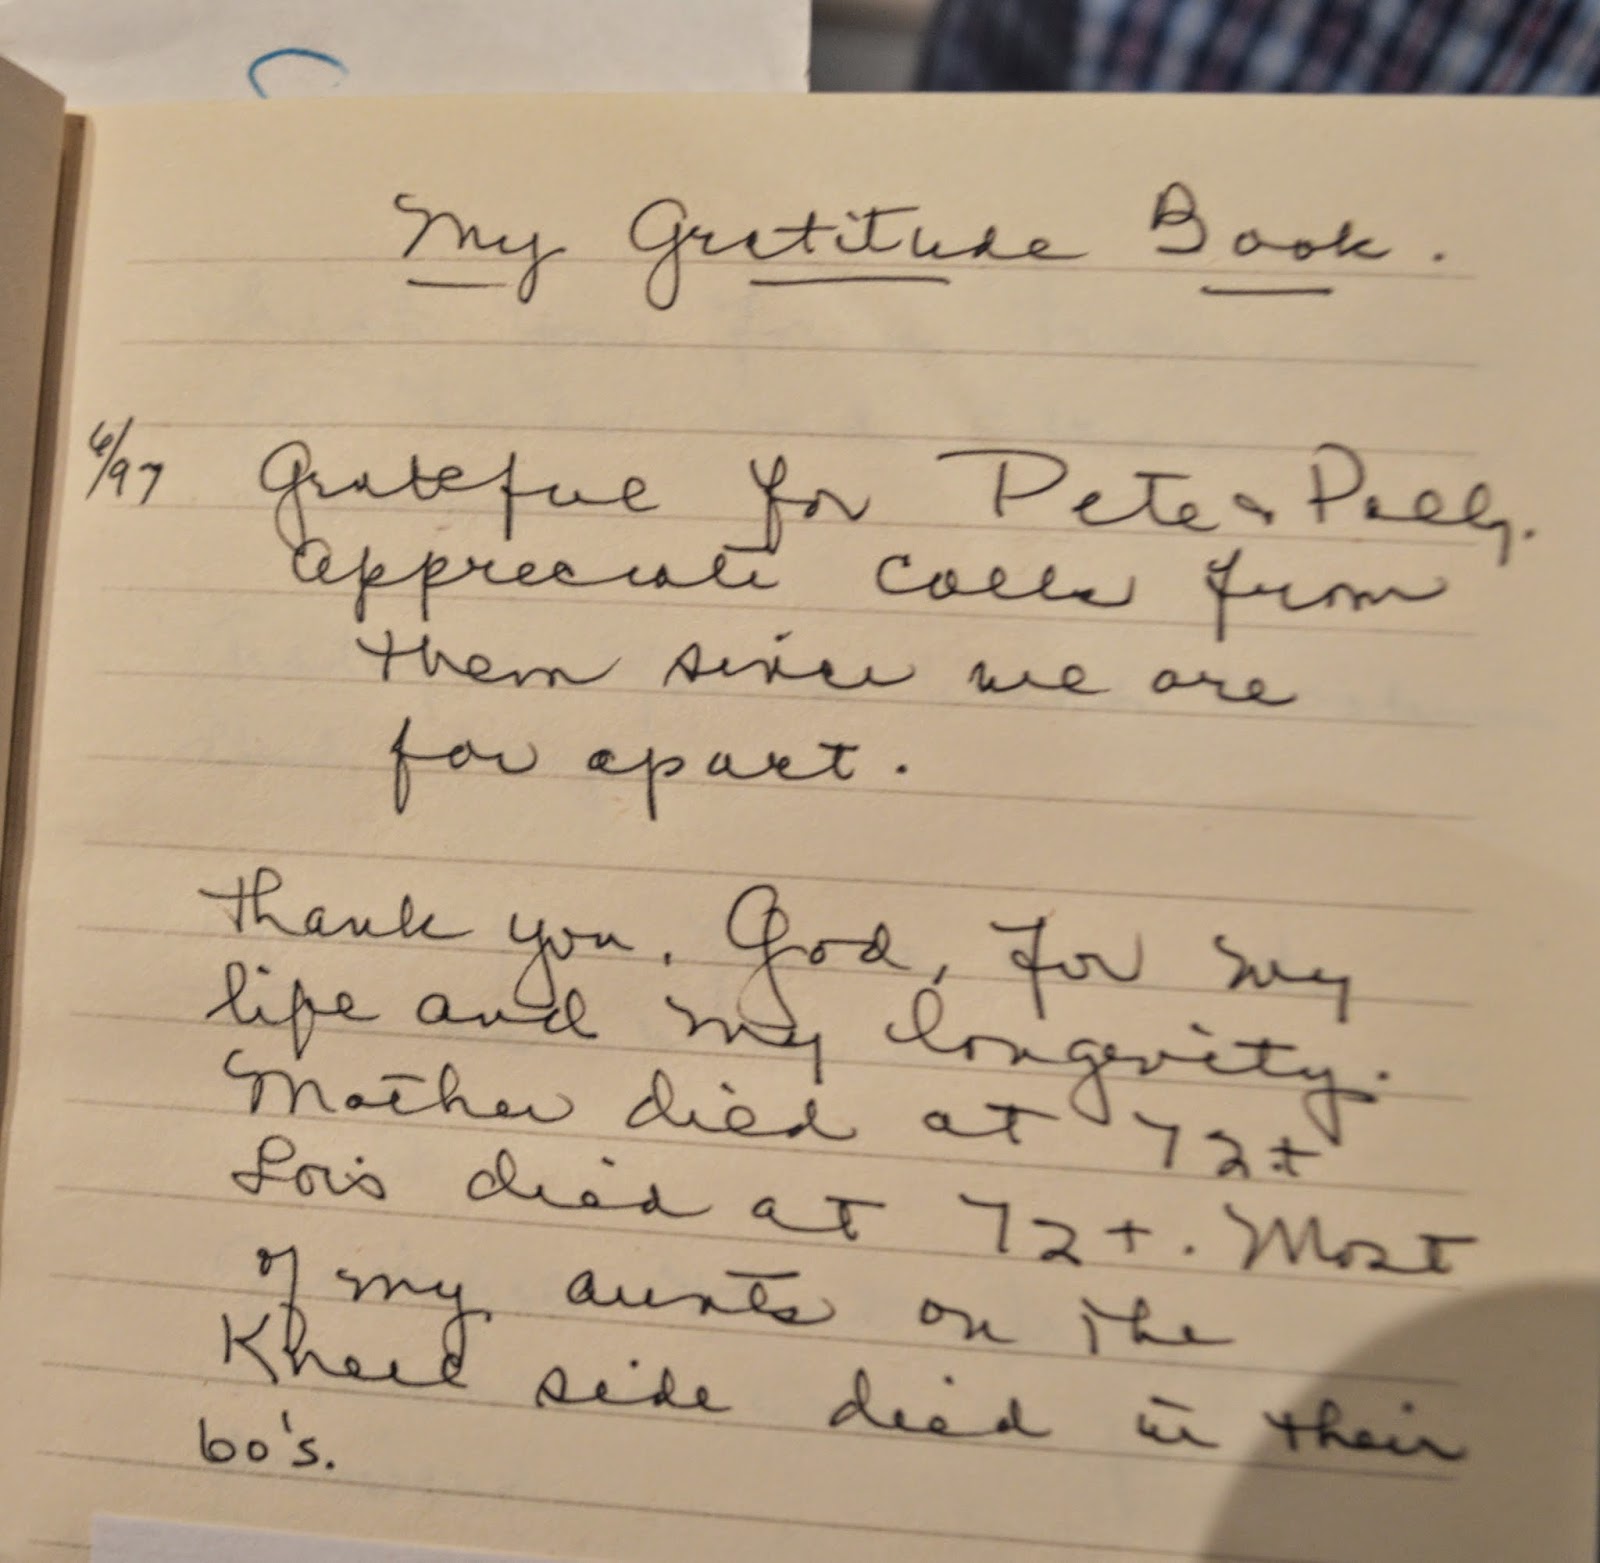 My Gratitude Book.
6/97 Grateful for Pete & Polly.
Appreciate calls from
them since we are
far apart.
Thank you, God, for my
life and my longevity.
Mother died at 72+
Lois died at 72+. Most
of my aunts on the
side died in their
60's.